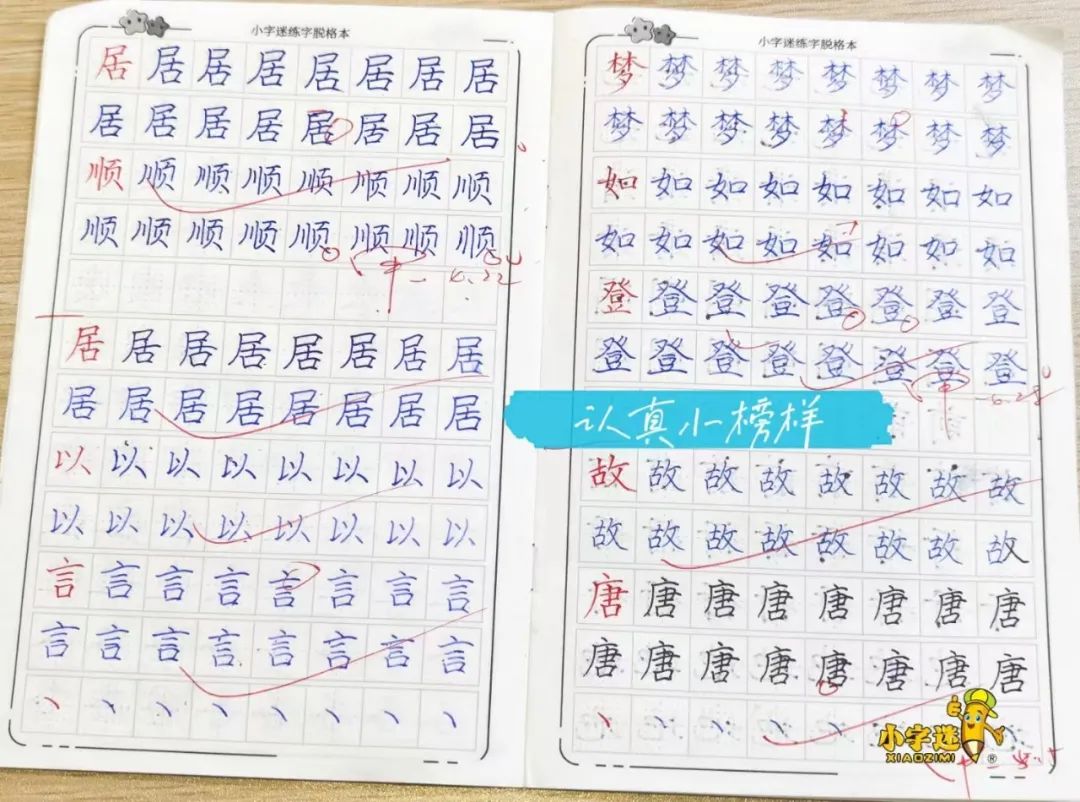 小字迷练字脱格本
居居居居居居居居
居居居居居居居居
顺顺顺顺顺顺顺顺
顺顺顺顺顺顺顺顺
居居居居居居居居
居居居居居居居居
以以以以以以以以
以以以以以以以以
言言言言言言言言
言言言言言言言言
丶丶丶丶丶丶丶丶
小字迷练字脱格本
梦梦梦梦梦梦梦梦
梦梦梦梦梦梦梦梦
如如如如如如如如
如如如如如如如如
登登登登登登登登
登登登登登登登登
认真小榜样
故故故故故故故故
故故故故故故故故
唐唐唐唐唐唐唐唐
唐唐唐唐唐唐唐唐
小字迷
XIAOZIMI
®